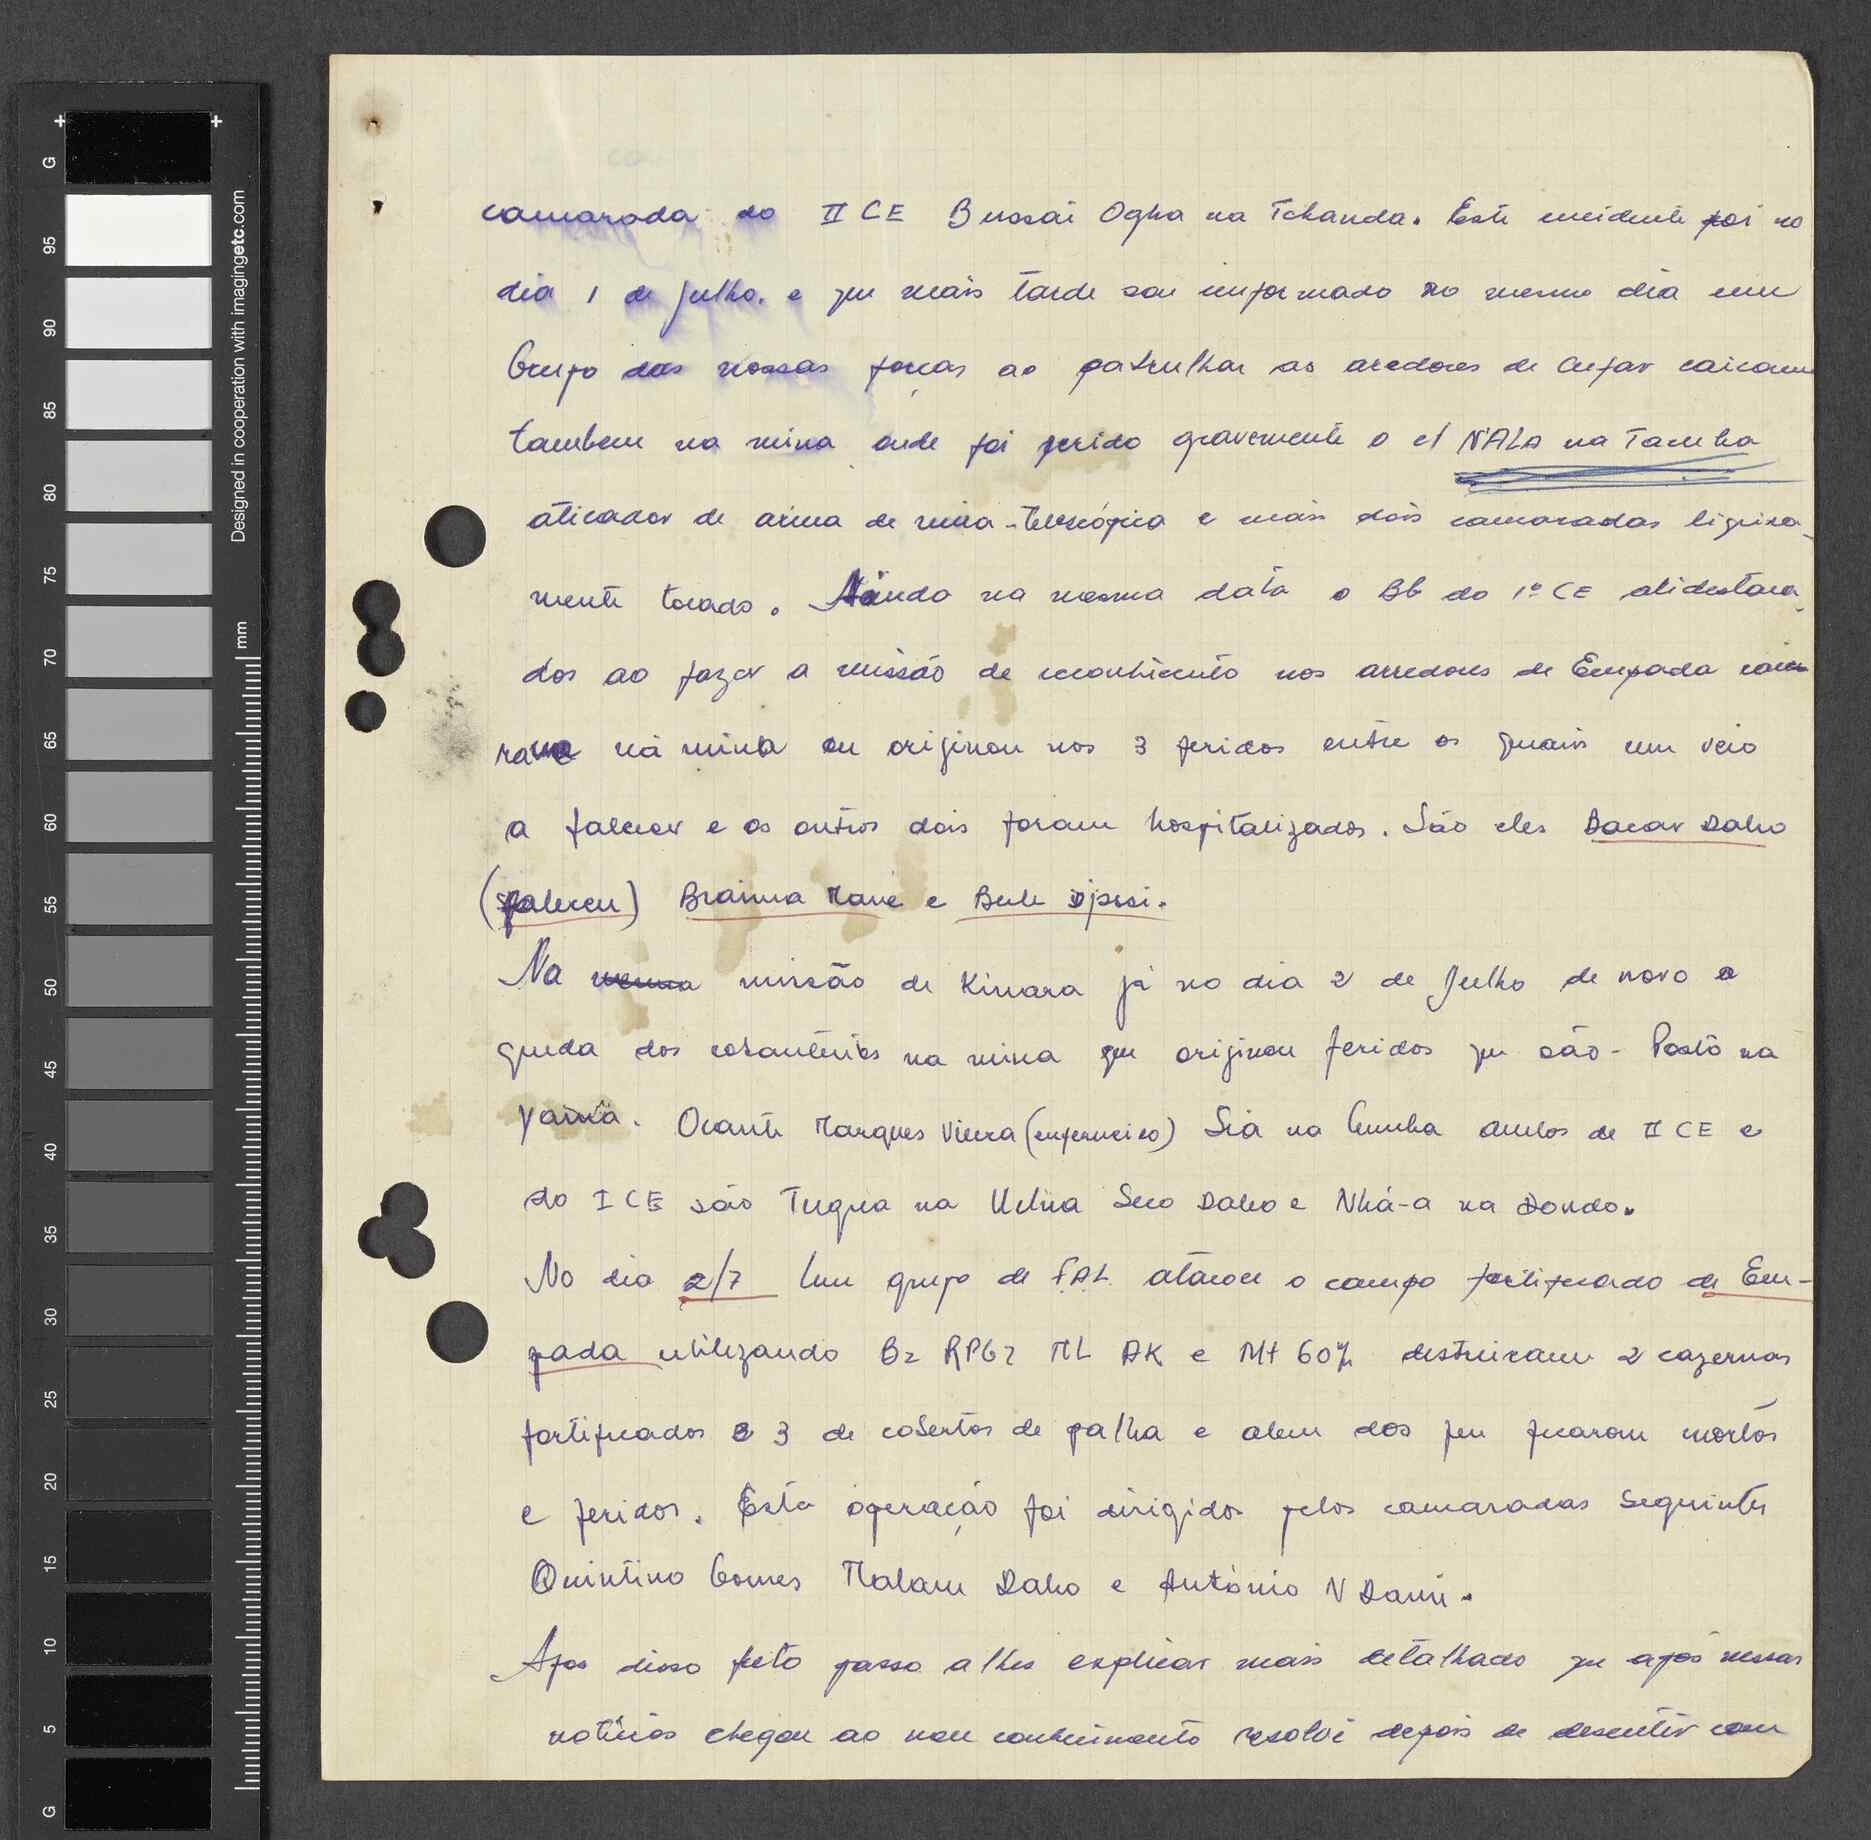 camarada do II CE Bussai Ogha na Tchanda. Este incidente foi no
dia 1 de Julho. e que mais tarde sou informado no mesmo dia um
Grupo das nossas forças ao patrulhar as aredores de Cufar cairam
tambem na mina onde foi ferido gravemente o c/ N'ALA na Tamba
aticador de arma de mira-telescópica e mais dois camaradas ligeira-
mente tocado. Ainda na mesma data o Bb do 1º CE alidestaca-
dos ao fazer a missão de reconhicimento nos arredores de Empada caie
ram na mina ou originou nos 3 feridos entre os quais um veio
a falecer e os outros dois foram hospitalizados. São eles Bacar Daho
(faleceu) Braima Mané e Bule Djassi.
Na mesma missão de Kinara já no dia 2 de Julho de novo a
queda dos sabanterios na mina que originou feridos que são - Pastô na
Yamta. Ocante Marques Vieira (enfermeiro) Sia na Cumba ambos de II CE e
do I CE são Tugna na Udna Seco Daho e Nhá-a na Dondo.
No dia 2/7 Um grupo de FAL atacou o campo fortificado de Em-
pada utilizando Bz RPG7 ML AK e Mt 60% destruiram 2 cazernas
fortificados 3 de cobertos de palha e alem dos que ficaram mortos
e feridos. Esta operação foi dirigidos pelos camaradas Seguintes
Quintino Gomes Malam Daho e António N Dami.
Apos disso feito passo a lhes explicar mais detalhado que após nessas
notícias chegou ao meu conhecimento resolvi depois de descutir com